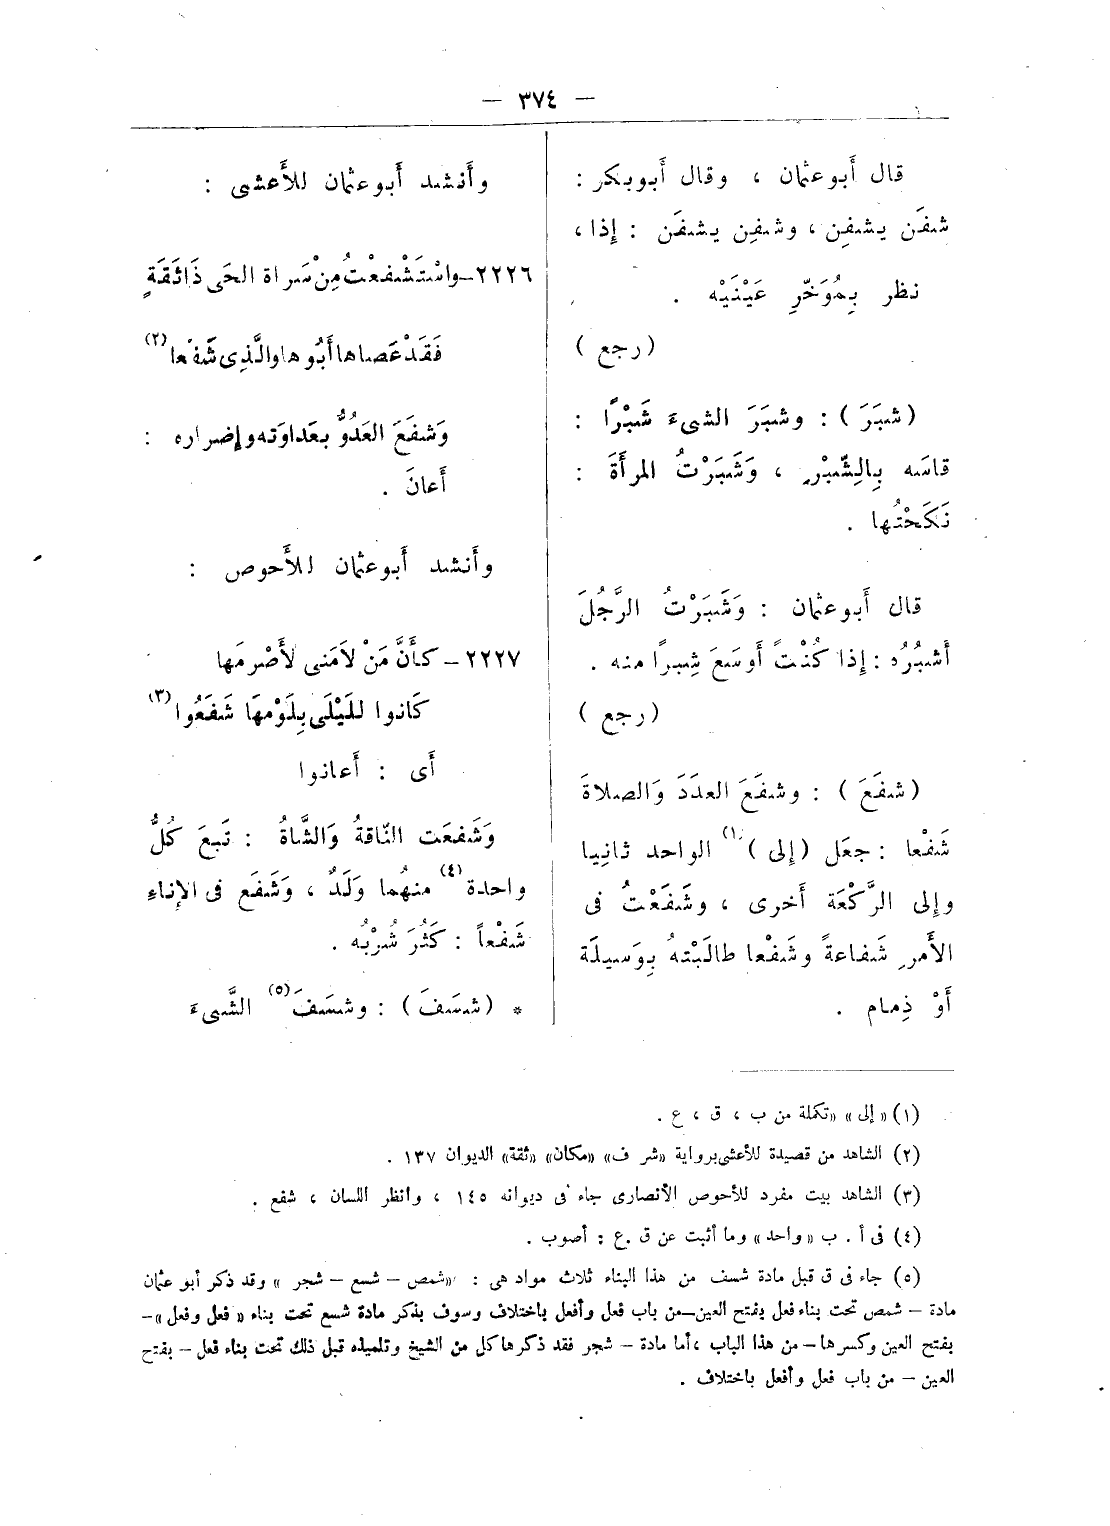 — ٣٧٤ —
قال أَبو عثمان ، وقال أَبو بكر :
شفَن يشفِن ، وشفِن يشفَن : إِذا ،
نظر بِمُوَخّرِ عَيْنَيْه .
( رجع )
( شبَرَ ) : وشبَرَ الشىءَ شَبْرًا :
قاسَه بِالِشّبْرِ ، وَشَبَرْتُ المرأَةَ :
نَكَحْتُها .
قال أَبو عثمان : وَشَبَرْتُ الرَّجُلَ
أَشبُرُه : إِذا كُنْتَ أَوسَعَ شِبرًا منه .
( رجع )
( شفَعَ ) : وشفَعَ العدَدَ وَالصلاةَ
شَفْعا : جعَل ( إلى )(١) الواحد ثانِيا
وإلى الرَّكْعَة أَخرى ، وشَفَعْتُ فى
الأَمرِ شَفاعةً وشَفْعا طالَبْتهُ بِوَسيلَة
أَوْ ذِمام .
وأَنشد أَبو عثمان للأَعشى :
٢٢٢٦ – واسْتَشْفعْتْ مِنْ سَراة الحَى ذَاثَقَةٍ
فَقَدْ عَصاها أَبُوها والَّذِى شَفَعا (٢)
وَشفَعَ العَدُوُّ بعَداوَته وإضراره :
أَعانَ .
وأَنشد أَبو عثمان للأَحوص :
٢٢٢٧ – كأَنَّ مَنْ لاَمَنى لأَصْرمَها
كَانوا للَيْلَى بِلَوْمهَا شَفَعُوا (٣)
أَى : أَعانوا
وَشَفعَت النّاقةُ وَالشَّاةُ : تَبعَ كُلُّ
واحدة (٤) منهُما وَلَدٌ ، وَشَفَع فى الإناءِ
شَفْعاً : كَثُرَ شُرْبُه .
* ( شسَفَ ) : وشسَفَ (٥) الشَّىءَ
(١) « إلى » «تكملة من ب ، ق ، ع .
(٢) الشاهد من قصيدة للأعشى برواية «شر ف» «مكان» «ثقة» الديوان ١٣٧ .
(٣) الشاهد بيت مفرد للأحوص الأنصارى جاء فى ديوانه ١٤٥ ، وانظر اللسان ، شفع .
(٤) فى أ . ب « واحد » وما أثبت عن ق .ع : أصوب .
(٥) جاء فى ق قبل مادة شسف من هذا البناء ثلاث مواد هى : «شمص – شسع – شجر » وقد ذكر أبو عثمان
مادة – شمص تحت بناء فعل بفتح العين – من باب فعل وأفعل باختلاف وسوف يذكر مادة شسع تحت بناء « فعل وفعل » –
بفتح العين وكسرها – من هذا الباب ، أما مادة – شجر فقد ذكرها كل من الشيخ وتلميذه قبل ذلك تحت بناء فعل – بفتح
العين – من باب فعل وأفعل باختلاف .